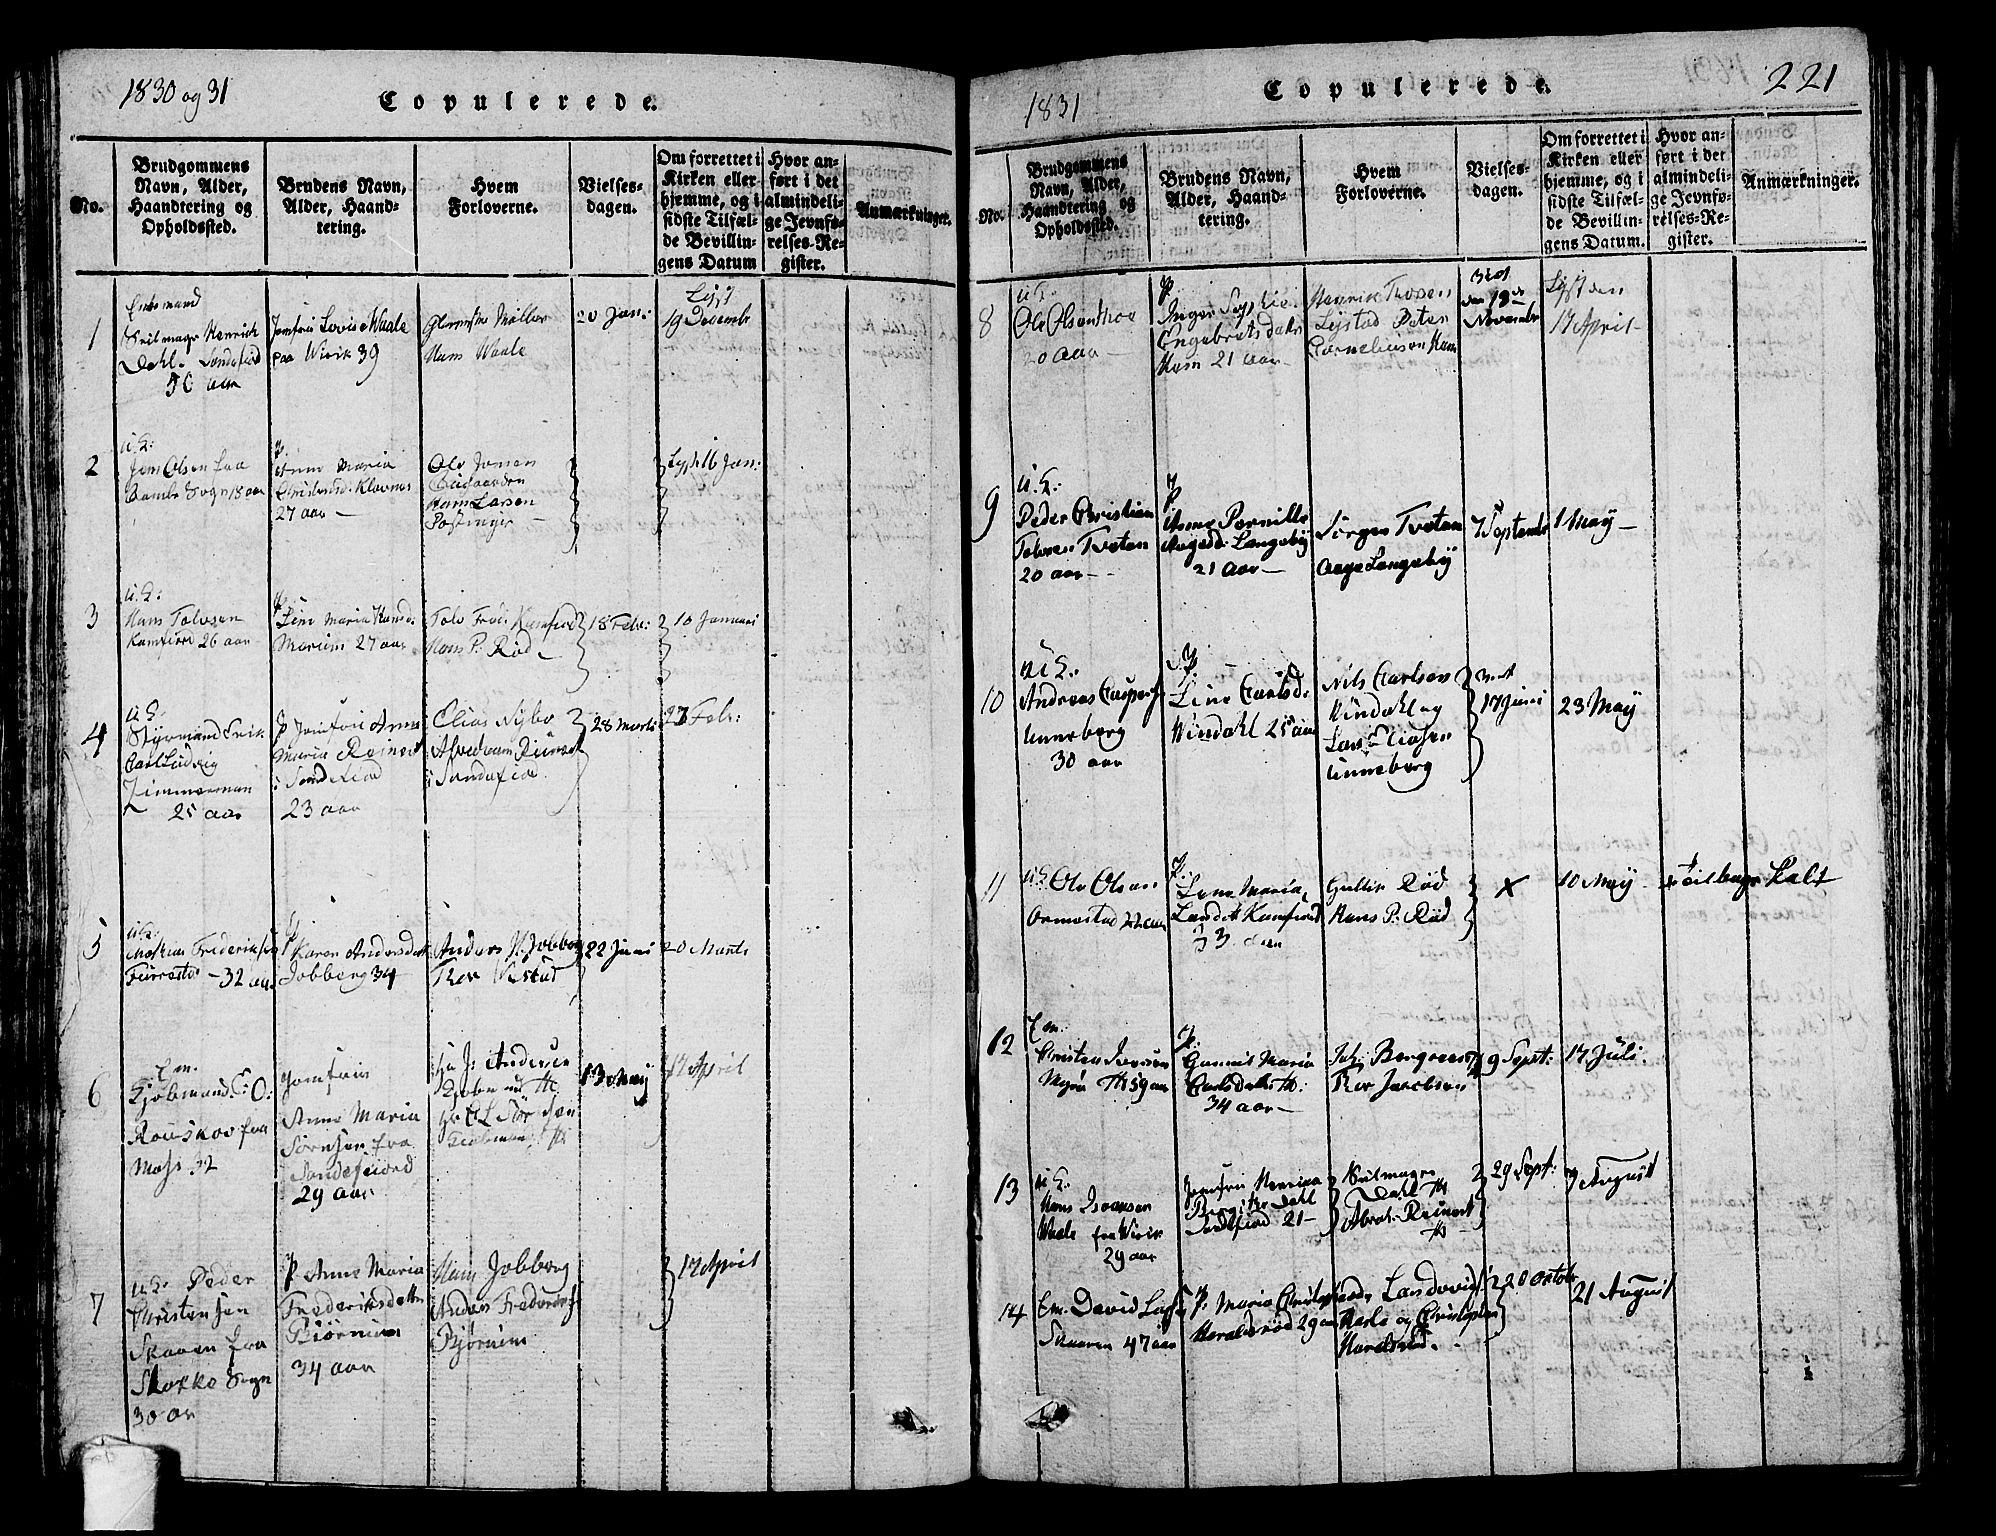 1830 og 31
Copulerede.
No.
Brudgommens
Navn, Alder,
Haandtering og
Opholdssted.
Brudens Navn,
Alder, Haand-
tering.
Hvem
Forloverne.
Vielses-
dagen.
Om forrettet i
Kirken eller
hjemme, og i
sidste Tilfæl-
de Bevillin-
gens Datum
Hvor an-
ført i det
almindeli-
ge Jevnfø-
relses-Re-
gister.
Anmærkninger.
1
Enkemand
Henrich
Dahl.
50 aar
Jomfrue Lovise Waale
paa Wivik 39
Møller
Hans Waale
20 Jan:
Lyst
19 Decembr
2
u.G:
Jens Olsen fra
Bamble Sogn 18 aar
P.
Anne Maria
Klavnes
27 aar
Ole Jensen
Hans Larsen
Lyst 16 Jan:
3
u.G:
Hans Tolvsen
Kamfiord 26 aar
P.
Line Maria Hansd.
Marium 27 aar
Tolv Fred: Kamfiord
Hans P. Rød
18 Febr:
10 Januari
4
u.G.
Styrmand Erik
Carl Ludvig
Zimmerman
25 aar
P Jomfrue Anne
Maria Reinert
i Sandefiord
23 aar
Elias Nybo
i Sandefior
28 Marti
27 Febr:
5
u.G:
Mathias Frederiksen
Furustad 32 aar
P
Karen Andersdatt
Jobberg 34
Anders N. Jobberg
Thor Westad
22 Juni
20 Marts
6
E.m.
Kjøbmand C: O:
Rouskov fra
Moss 32
Jomfrue
Anne Maria
Sørensen fra
Sandefiord
29 aar
Hr J: Andersen
13 May
12 April
7
u.G: Peder
Christensen
Skaven fra
Sogn
30 aar
P Anne Maria
Frederiksdatter
Biørnum
34 aar
Hans Jobberg
Anders Frederiks
Bjørnum
12 April
1831
Copulerede.
221
No.
Brudgommens
Navn, Alder,
Haandtering og
Opholdssted.
Brudens Navn,
Alder, Haand-
tering.
Hvem
Forloverne.
Vielses-
dagen.
Om forrettet i
Kirken eller
hjemme, og i
sidste Tilfæl-
de Bevillin-
gens Datum.
Hvor an-
ført i det
almindeli-
ge Jevnfø-
relses-Re-
gister.
Anmærkninger.
8
u.G:
Ole Olsen
20 Aar
P.
Inger Sophie
Engebretsdatter
Ham 21 aar
Henrik Thosen
Lystad Peter
Corneliusen Ham
viet
den 18de
November
Lyst den
17 April
9
u.G:
Peder Christian
Tolvsen Tveten
20 aar
P
Anne Pernille
Aagesd: Langeby
21 Aar
Jørgen Tveten
Aage Langeby
7 Septembr
1 May
10
u.G:
Andreas Caspers.
Unneberg
30 aar
P.
Line Carlsd.
Windahl 25 aar
Nils Carlsen
Windahl og
Lars Eliasen
Unneberg
viet
17 Juni
23 May
11
u.G. Ole Olsen
Ormestad 22 aar
P.
Lene Maria
Larsdtt Kamfiord
33 aar
Gullik Rød
Hans P: Rød
X
10 May
x Tilbage Kalt
12
E.m.
Christen Iversen
Myra 59 aar
P.
Gunnil Maria
Carlsdatter
34 aar
Joh: Bergersen
Thor Jacobsen
9 Sept:
17 Juli.
13
u.G.
Hans Isaksen
Waale fra Wivik
29 aar
Jomfrue Henrica
Birgitte Dahl
Sandefiord 21
Dahl
Abrah. Reinert
29 Sept:
7 August
14
Em. David Lars.
Skaaren 47 aar
P. Maria Christoph
Haraldsrød 29 aar
Peder Landevid
Hasle og Christophen
Haraldsrød.
20 October
21 August